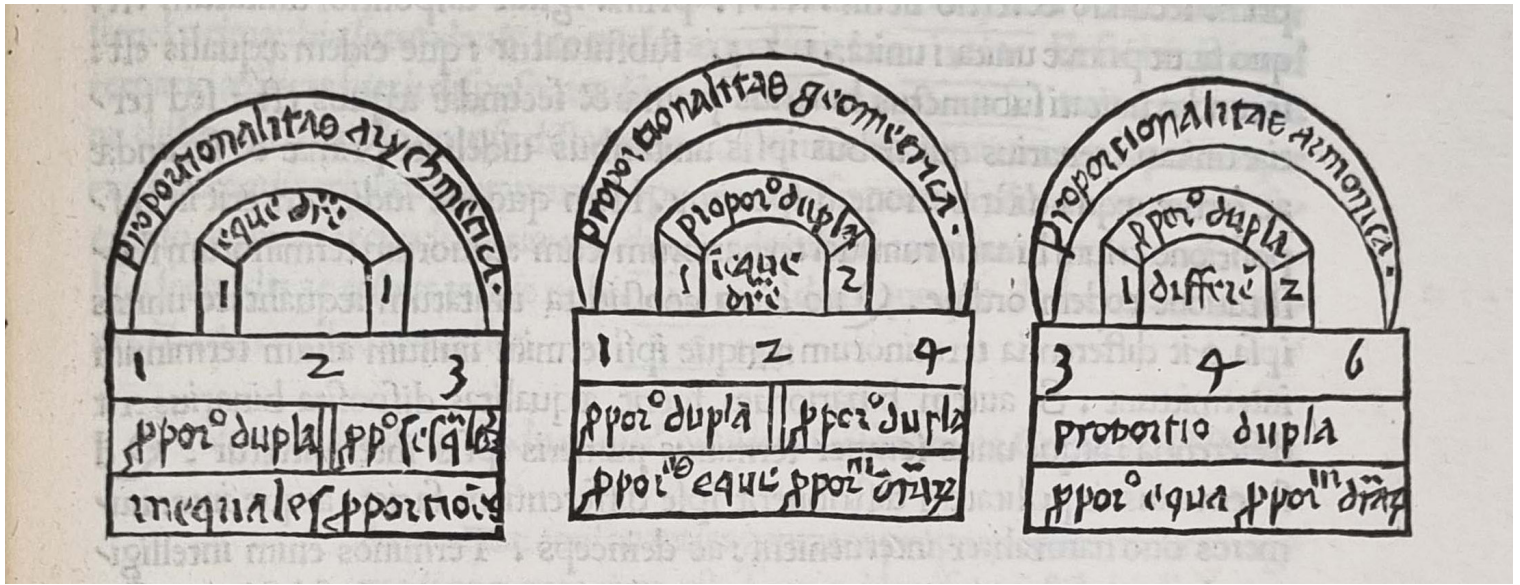 proportionalitas arythmetica.
eque drīe
1 1
1 2 3
ꝓporᵒ dupla ꝓpᵒ
inequales ꝓportiōes
proportionalitas geometrica.
proporᵒ dupla
1 īeque drīe 2
1 2 4
ꝓporᵒ dupla ꝓporᵒ dupla
ꝓpor eque ꝓpor
proporcionalitas armonica.
ꝓporᵒ dupla
1 differē 2
3 4 6
proportio dupla
ꝓporᵒ equa ꝓpor